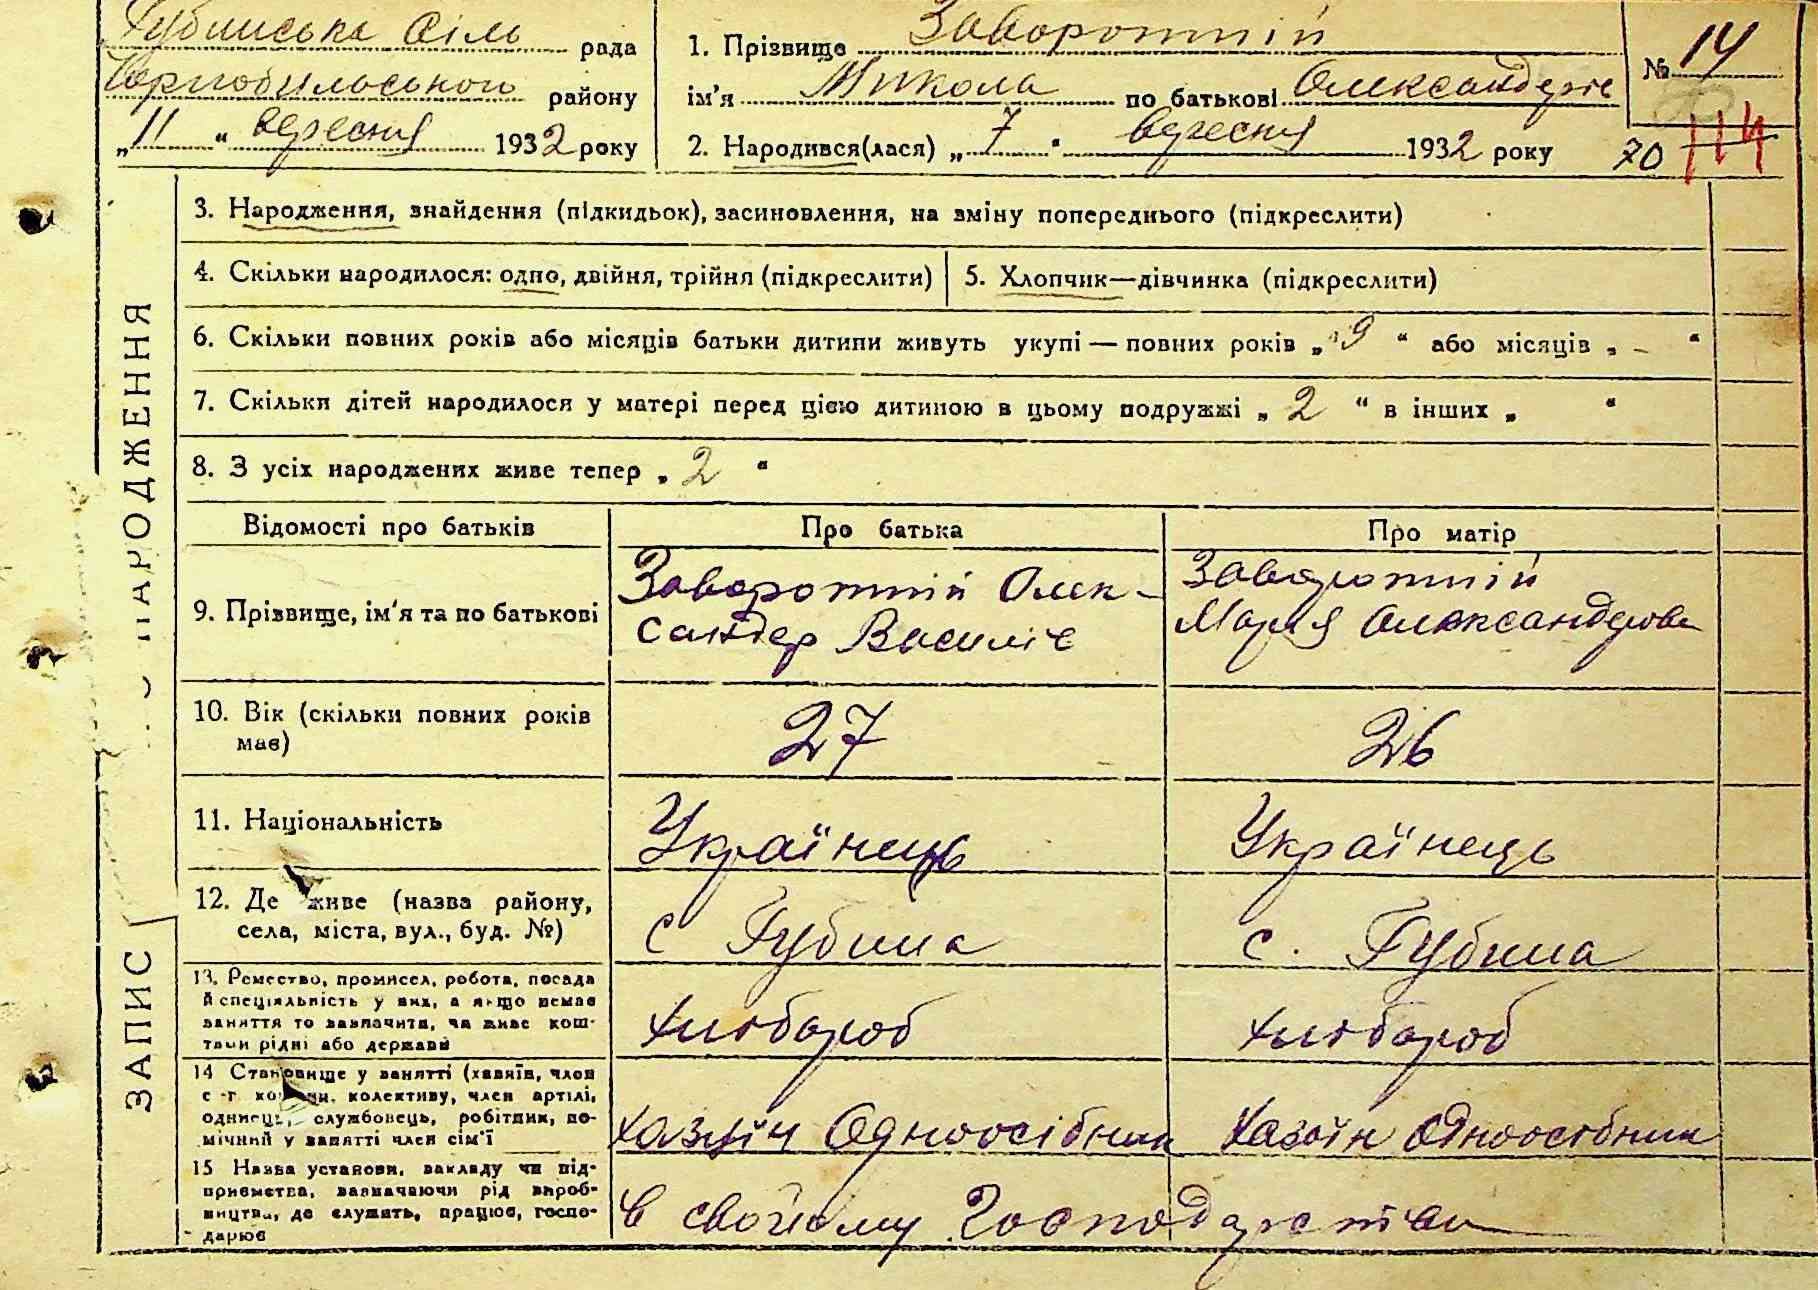 Губинська сіль рада
Чорнобильського району
„11“ вересня 1932 року
1. Прізвище Заворотній
ім'я Микола по батькові Олександеріє
2. Народився(лася) „7“ вересня 1932 року
№ 14
70 114
ЗАПИС ПРО НАРОДЖЕННЯ
3. Народження, знайдення (підкидьок), засиновлення, на зміну попереднього (підкреслити)
4. Скільки народилося: одно, двійня, трійня (підкреслити)
5. Хлопчик—дівчинка (підкреслити)
6. Скільки повних років або місяців батьки дитини живуть укупі — повних років „9“ або місяців „-“
7. Скільки дітей народилося у матері перед цією дитиною в цьому подружжі „2“ в інших „ “
8. З усіх народжених живе тепер „2“
Відомості про батьків Про батька Про матір
9. Прізвище, ім'я та по батькові
Заворотній Олек-
сандер Василіє
Заворотній
Марія Олександерова
10. Вік (скільки повних років
має)
27
26
11. Національність
Українець
Українець
12. Де живе (назва району,
села, міста, вул., буд. №)
с Губина
с. Губина
13. Ремество, промисел, робота, посада
й спеціяльність у них, а якщо немає
заняття то зазначити, чи живе кош-
тами рідні або держави
хлібороб
хлібороб
14 Становище у занятті (хазяїн, член
с.-г. комуни, колективу, член артілі,
одинець, службовець, робітник, по-
мічний у занятті член сім'ї
хазяїн Одноосібник
хазяїн Одноосібник
15 Назва установи, закладу чи під-
приємства, зазначаючи рід вироб-
ництва, де служить, працює, госпо-
дарює
в свойому Господарстві